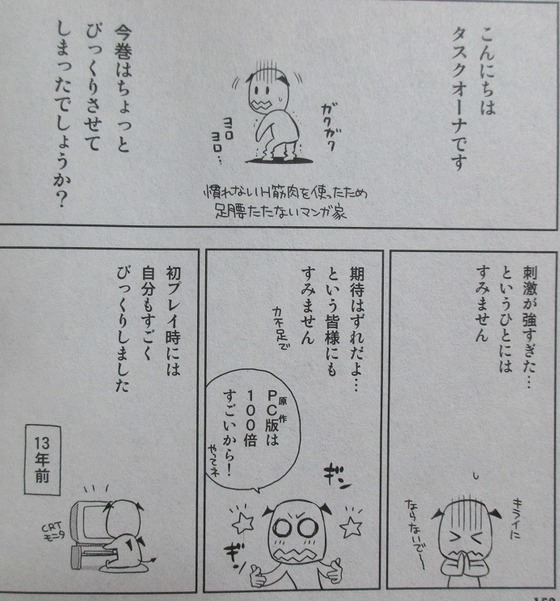 こんにちは
タスクオーナです
ガクガク
ヨロ
ヨロ…
慣れないH筋肉を使ったため
足腰たたないマンガ家
今巻はちょっと
びっくりさせて
しまったでしょうか？
刺激が強すぎた…
というひとには
すみません
キライに
ならないで〜
期待はずれだよ…
という皆様にも
すみません
力不足で
原作
PC版は
100倍
すごいから！
やってネ
ギン
ギン
初プレイ時には
自分もすごく
びっくりしました
13年前
CRT
モニタ